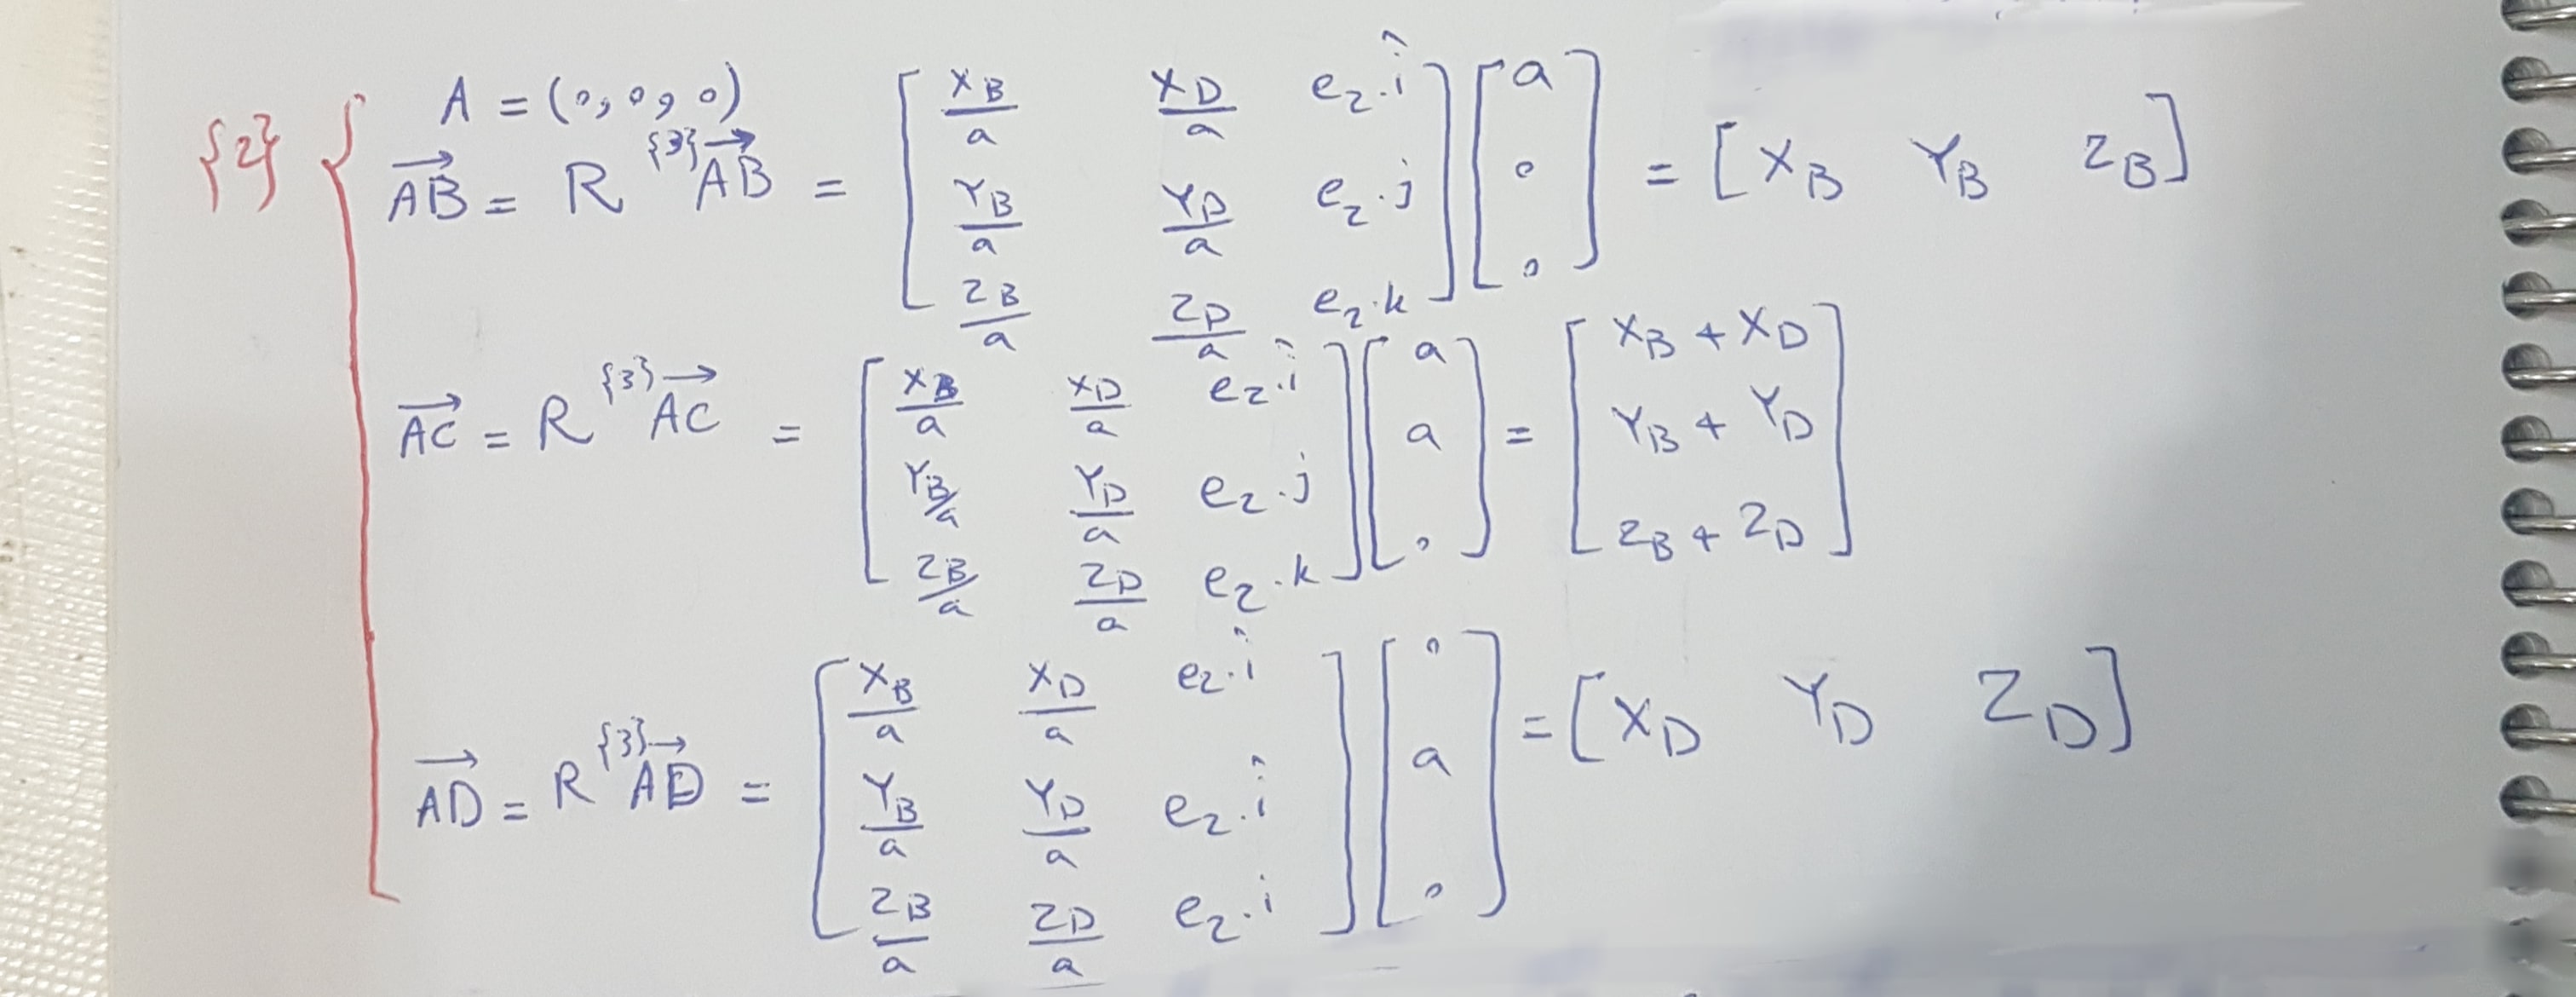 {2} { A = (0, 0, 0)
\overrightarrow{AB} = R ^{\{3\}}\overrightarrow{AB} = \begin{bmatrix} \frac{x_B}{a} & \frac{x_D}{a} & e_2 \cdot \hat{i} \\ \frac{Y_B}{a} & \frac{Y_D}{a} & e_2 \cdot j \\ \frac{z_B}{a} & \frac{z_D}{a} & e_2 \cdot k \end{bmatrix} \begin{bmatrix} a \\ 0 \\ 0 \end{bmatrix} = [x_B \quad Y_B \quad z_B]
\overrightarrow{AC} = R ^{\{3\}}\overrightarrow{AC} = \begin{bmatrix} \frac{x_B}{a} & \frac{x_D}{a} & e_2 \cdot \hat{i} \\ \frac{Y_B}{a} & \frac{Y_D}{a} & e_2 \cdot j \\ \frac{z_B}{a} & \frac{z_D}{a} & e_2 \cdot k \end{bmatrix} \begin{bmatrix} a \\ a \\ 0 \end{bmatrix} = \begin{bmatrix} x_B + x_D \\ Y_B + Y_D \\ z_B + z_D \end{bmatrix}
\overrightarrow{AD} = R ^{\{3\}}\overrightarrow{AD} = \begin{bmatrix} \frac{x_B}{a} & \frac{x_D}{a} & e_2 \cdot \hat{i} \\ \frac{Y_B}{a} & \frac{Y_D}{a} & e_2 \cdot \hat{i} \\ \frac{z_B}{a} & \frac{z_D}{a} & e_2 \cdot i \end{bmatrix} \begin{bmatrix} 0 \\ a \\ 0 \end{bmatrix} = [x_D \quad Y_D \quad z_D]